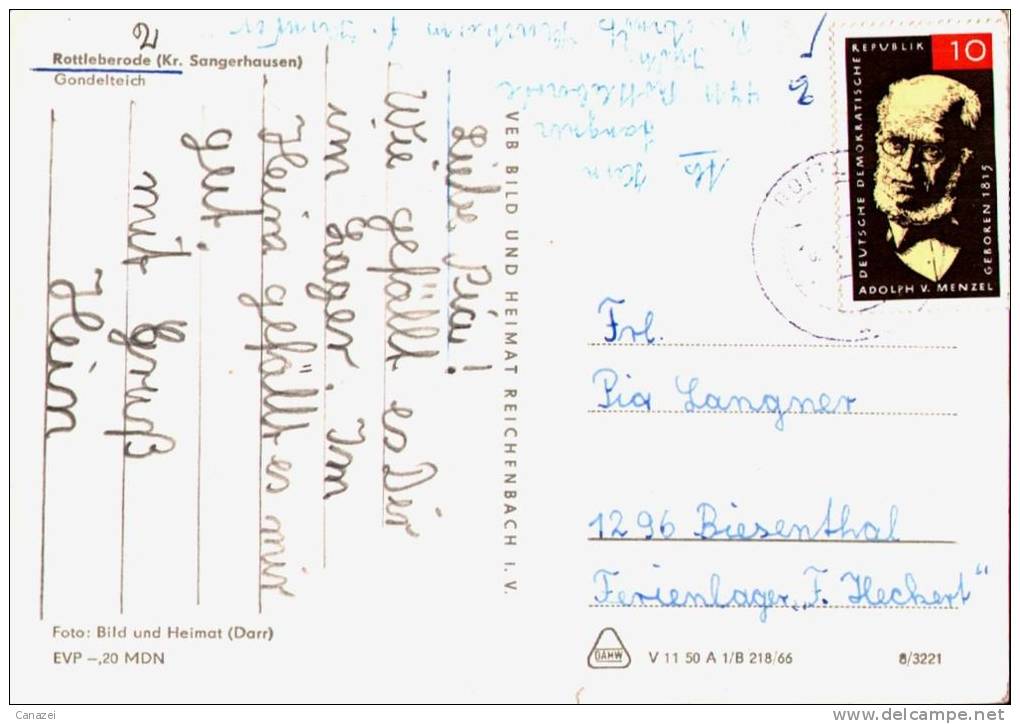 Rottleberode (Kr. Sangerhausen)
Gondelteich
Liebe Pia!
Wie gefällt es Dir
im Lager. Im
Heim gefällt es mir
gut.
mit Gruß
Hein
VEB BILD UND HEIMAT REICHENBACH I. V.
Abs
Langner
4711 Rottleberode
DEUTSCHE DEMOKRATISCHE
REPUBLIK 10
GEBOREN 1815
ADOLPH V. MENZEL
Frl.
Pia Langner
1296 Biesenthal
Ferienlager „F. Heckert"
Foto: Bild und Heimat (Darr)
EVP –,20 MDN
DAHW
V 11 50 A 1/B 218/66
8/3221
Canazei
www.delcampe.net